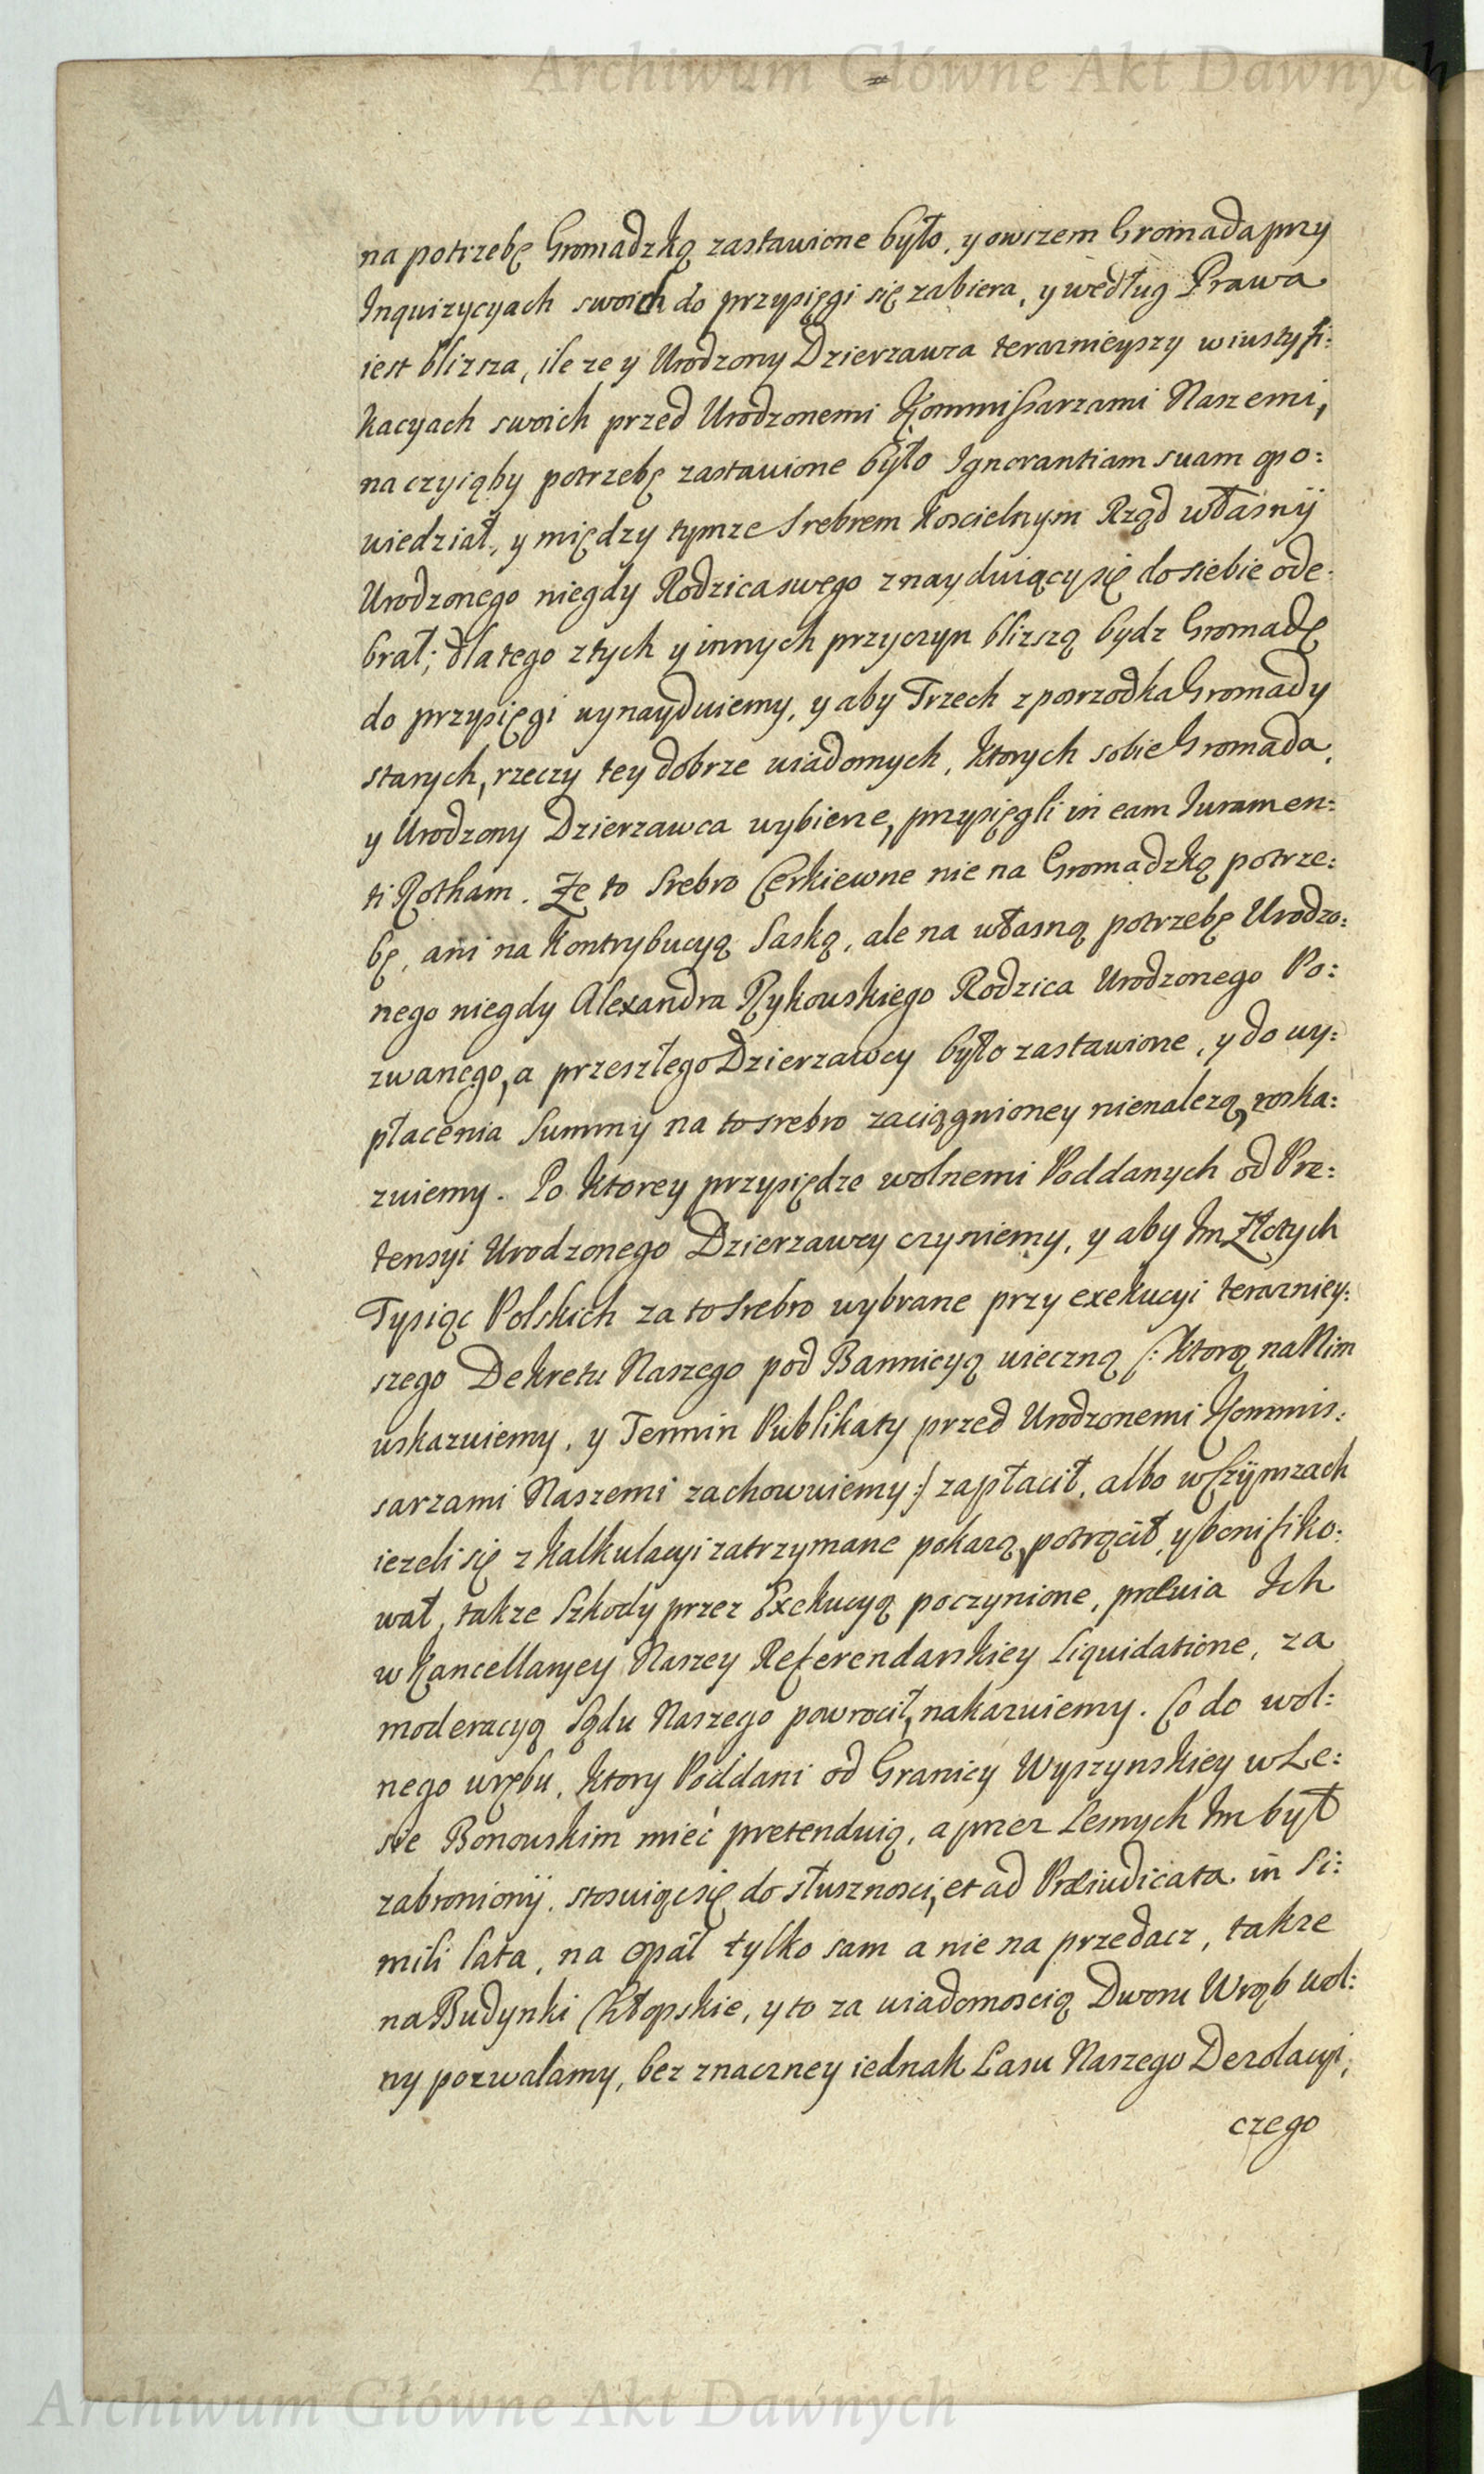 Archiwum Główne Akt Dawnych
na potrzebę Gromadzką zastawione było, y owszem Gromada przy
Inquizycyach swoich do przysięgi się zabiera, y według Prawa
iest blizsza, ile ze y Urodzony Dzierzawca teraznieyszy w iustyfi:
kacyach swoich przed Urodzonemi Kommissarzami Naszemi,
na czyiąby potrzebę zastawione było Ignorantiam suam opo:
wiedział, y między tymze Srebrem Koscielnym Rząd własny
Urodzonego niegdy Rodzica swego znayduiący się do siebie ode:
brał; dla tego z tych y innych przyczyn blizszą bydz Gromadę
do przysięgi wynayduiemy, y aby Trzech z posrzodka Gromady
starych, rzeczy tey dobrze wiadomych, ktorych sobie Gromada,
y Urodzony Dzierzawca wybierze, przysięgli in eam Juramen:
ti Rotham. Ze to Srebro Cerkiewne nie na Gromadzką potrze:
bę, ani na Kontrybucyą Saską, ale na własną potrzebę Urodzo:
nego niegdy Alexandra Rykowskiego Rodzica Urodzonego Po:
zwanego, a przeszłego Dzierzawcy było zastawione, y do wy:
płacenia Summy na to srebro zaciągnioney nienalezą, roska:
zuiemy. Po ktorey przysiędze wolnemi Poddanych od Pre:
tensyi Urodzonego Dzierzawcy czyniemy, y aby Im Złotych
Tysiąc Polskich za to Srebro wybrane przy exekucyi terazniey:
szego Dekretu Naszego pod Bannicyą wieczną /: ktorą na Nim
wskazuiemy, y Termin Publikaty przed Urodzonemi Kommis:
sarzami Naszemi zachowuiemy :/ zapłacił, albo w Czynszach
iezeli się z kalkulacyi zatrzymane pokazą, potrącił, y bonifiko:
wał, takze Szkody przez Exekucyą poczynione, prævia Ich
w Kancellaryey Naszey Referendarskiey Liquidatione, za
moderacyą Sądu Naszego powrocił, nakazuiemy. Co do wol:
nego wrębu, ktory Poddani od Granicy Wyszynskiey w Le:
sie Bonowskim mieć pretenduią, a przez Lesnych Im był
zabroniony, stosuiąc się do słusznosci, et ad Præiudicata in Si:
mili lata, na opał tylko sam a nie na przedacz, takze
na Budynki Chłopskie, y to za wiadomoscią Dworu Wrąb wol:
ny pozwalamy, bez znaczney iednak Lasu Naszego Dezolacyi,
czego
Archiwum Główne Akt Dawnych